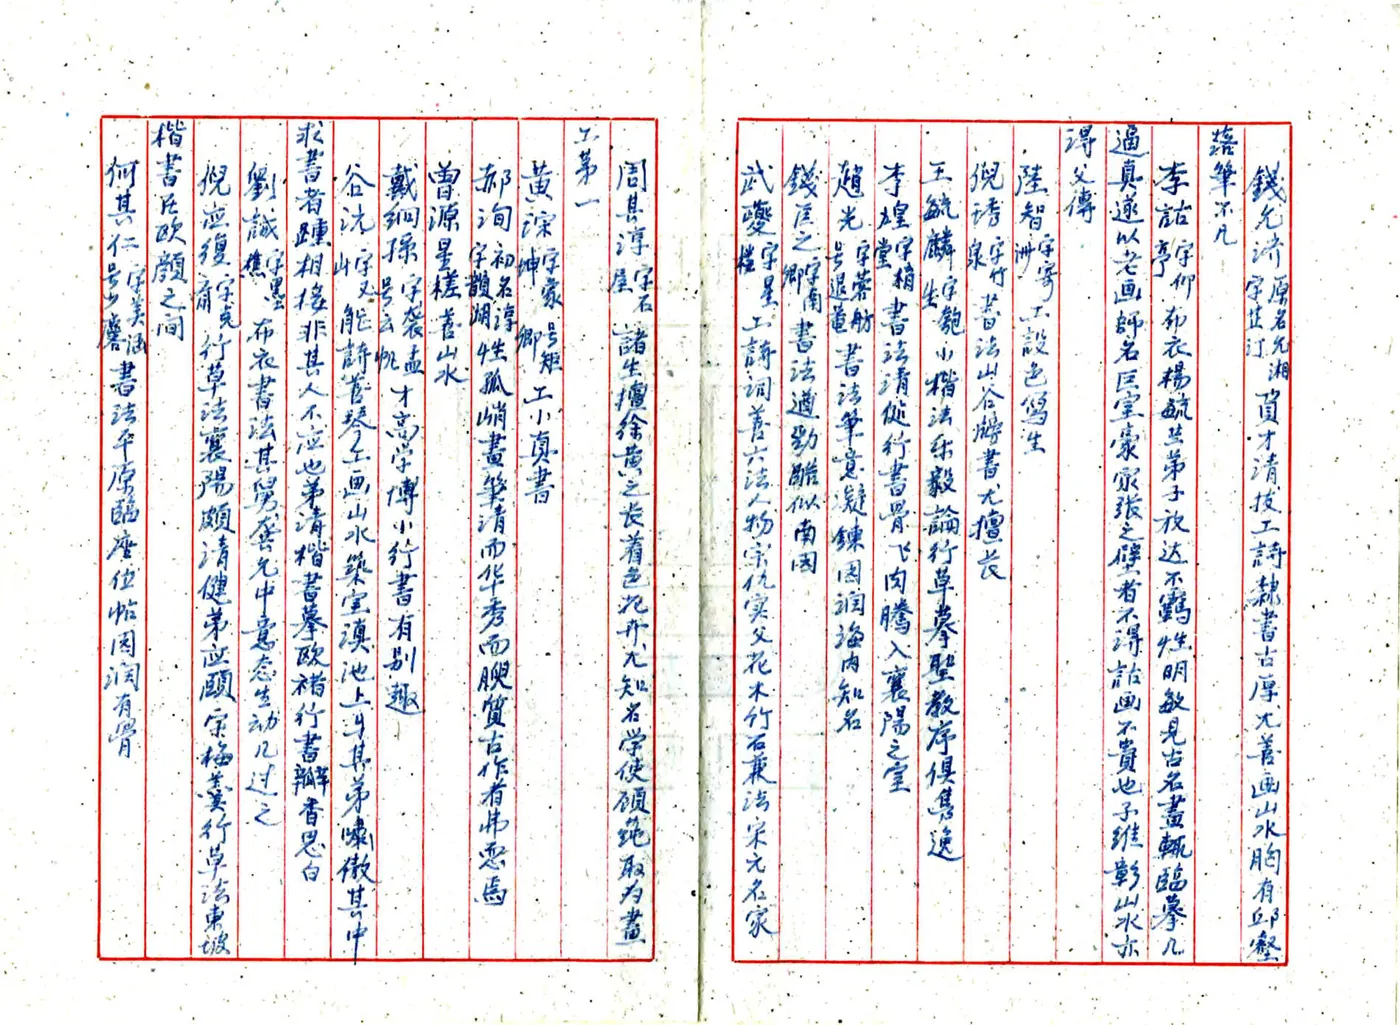 錢允济原名允湘字芷汀貲才清拔工詩隸書古厚尤善画山水胸有邱壑
落筆不凡
李詁字仰亭布衣楊毓兰弟子放达不羈性明敏見古名畫輒臨摹几
逼真遂以老画師名巨室豪家張之壁者不得詁画不貴也子維彰山水亦
得父傳
陸智字寄洲工設色写生
倪琇字竹泉書法山谷牓書尤擅长
王毓麟字匏生小楷法乐毅論行草摹聖教序俱隽逸
李煌字梢堂書法清挺行書骨飞肉腾入襄陽之室
趙光字蓉舫号退菴書法筆意凝鍊园润海内知名
錢宦之字南卿書法遒勁酷似南园
武夔字星樵工詩词善六法人物宗仇实父花木竹石兼法宋元名家
周其淳字石屋諸生擅徐黄之长着色花卉尤知名学使顾莼取为畫
工第一
黄淙字家坤号矩卿工小真書
郝洵初名淳字韻湖性孤峭畫筆清而华秀而腴質古作者弗恧焉
曾源星槎善山水
戴絅孫字袭孟号云帆才高学博小行書有别趣
谷沆字又山能詩善琴工画山水築室滇池上与其弟嘯傲其中
求書者踵相接非其人不应也弟清楷書摹欧褚行書瓣香思白
劉誠字墨樵布衣書法其舅龚允中意态生动几过之
倪应復字克斋行草法襄陽颇清健弟应颐宗梅菴行草法東坡
楷書在欧顔之间
何其仁字美涵号少麐書法平原臨座位帖园润有骨